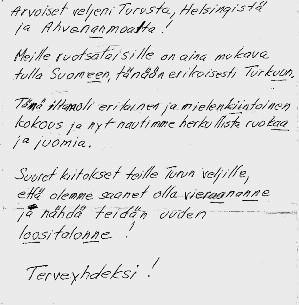 Arvoiset veljeni Turusta, Helsingistä
ja Ahvenanmaalta!
Meille ruotsalaisille on aina mukava
tulla Suomeen, tänään erikoisesti Turkuun.
Tämä iltamoli erilainen ja mielenkiintoinen
kokous ja nyt nautimme herkullista ruokaa
ja juomia.
Suuret kiitokset teille Turun veljille,
että olemme saanet olla vieraananne
ja nähdä teidän uuden
loositalonne!
Terveyhdeksi!